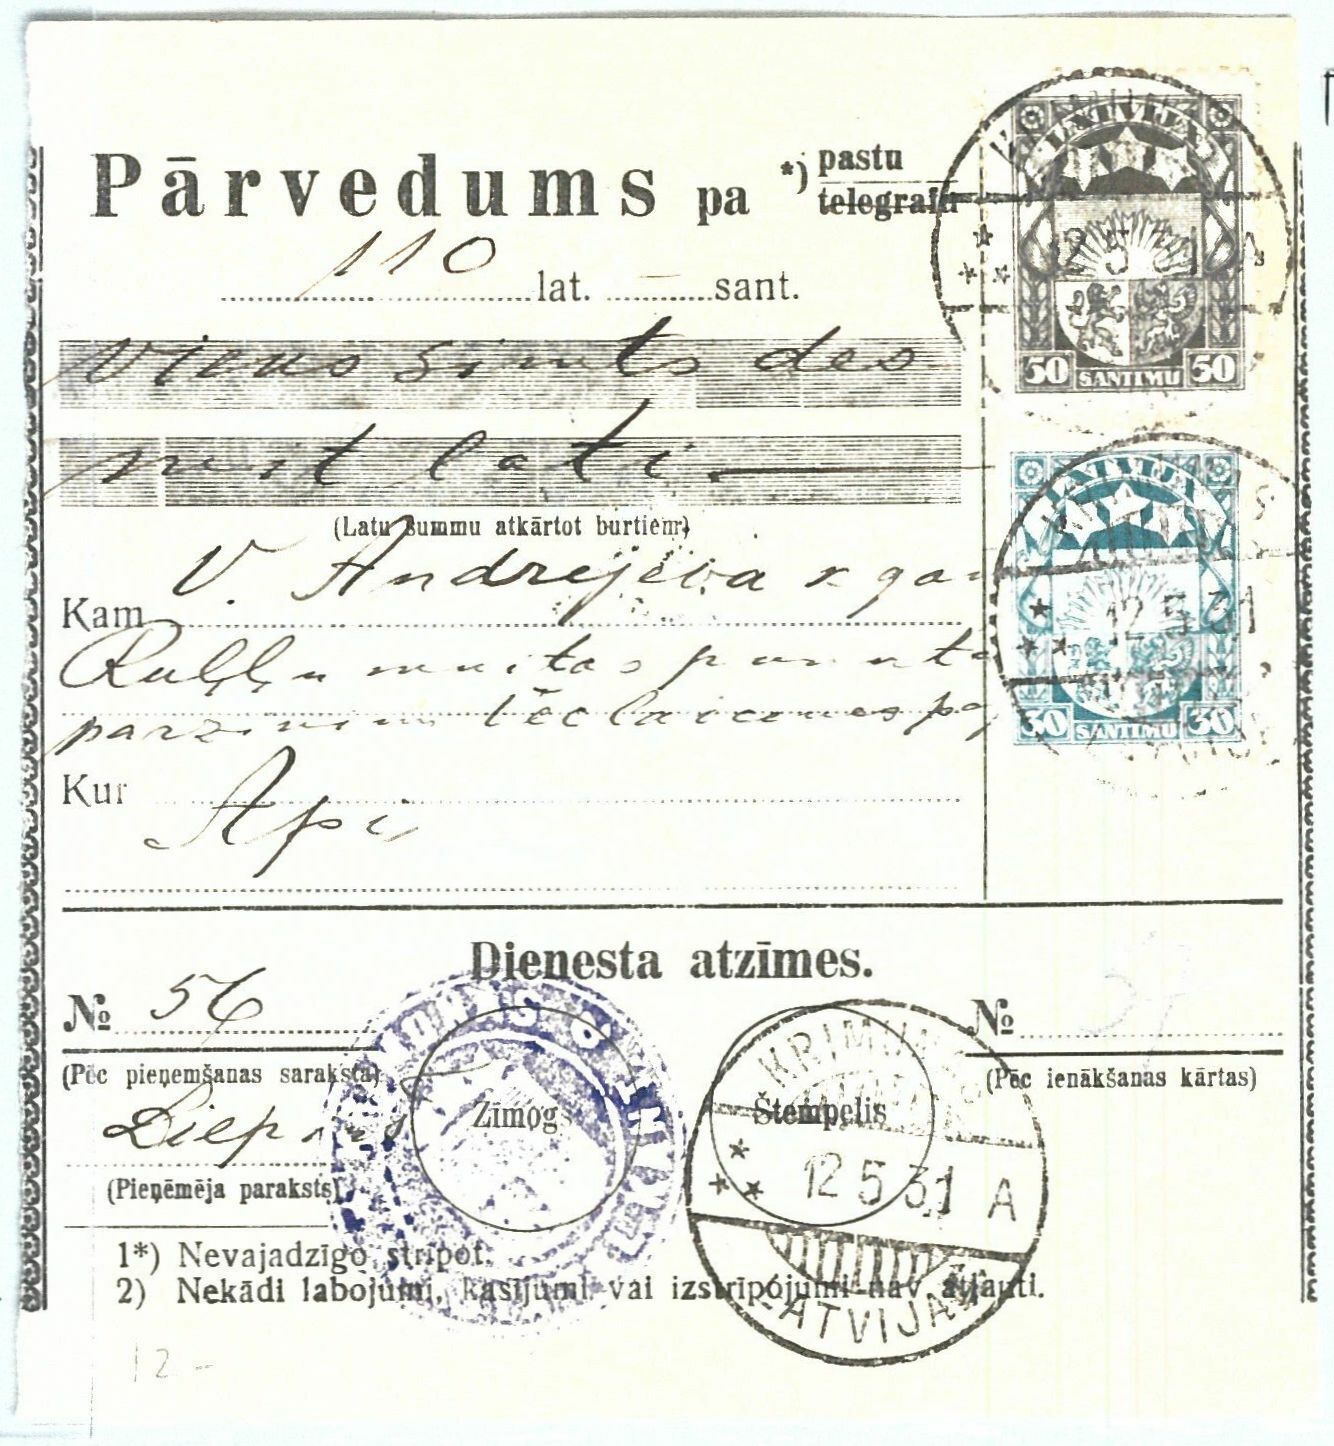 Pārvedums pa *) pastu
telegrafu
110 lat. — sant.
Viens simts des
mit lati.
(Latu summu atkārtot burtiem)
Kam V. Andrejeva kgam
Ruļļu muitas punkta
parzinim
Kur Api
LATVIJA
50 SANTIMU 50
12 5 31 A
LATVIJA
30 SANTIMU 30
12 5 31
Dienesta atzīmes.
№ 56
№
(Pēc pieņemšanas saraksta)
(Pēc ienākšanas kārtas)
Liepiņš
(Pieņēmēja paraksts)
Zīmogs
Štempelis
KRIMULDAS
12 5 31 A
LATVIJA
1*) Nevajadzīgo strīpot.
2) Nekādi labojumi, kasījumi vai izstrīpojumi nav atļauti.
12 -